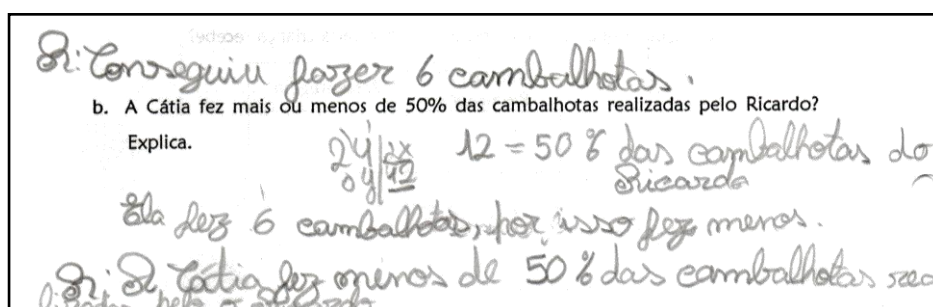 R: Conseguiu fazer 6 cambalhotas.
b. A Cátia fez mais ou menos de 50% das cambalhotas realizadas pelo Ricardo?
Explica.
24 | 2x 12 = 50% das cambalhotas do
04 | 12 Ricardo
Ela fez 6 cambalhotas, por isso fez menos.
R: A Cátia fez menos de 50% das cambalhotas rea
lizadas pelo o Ricardo